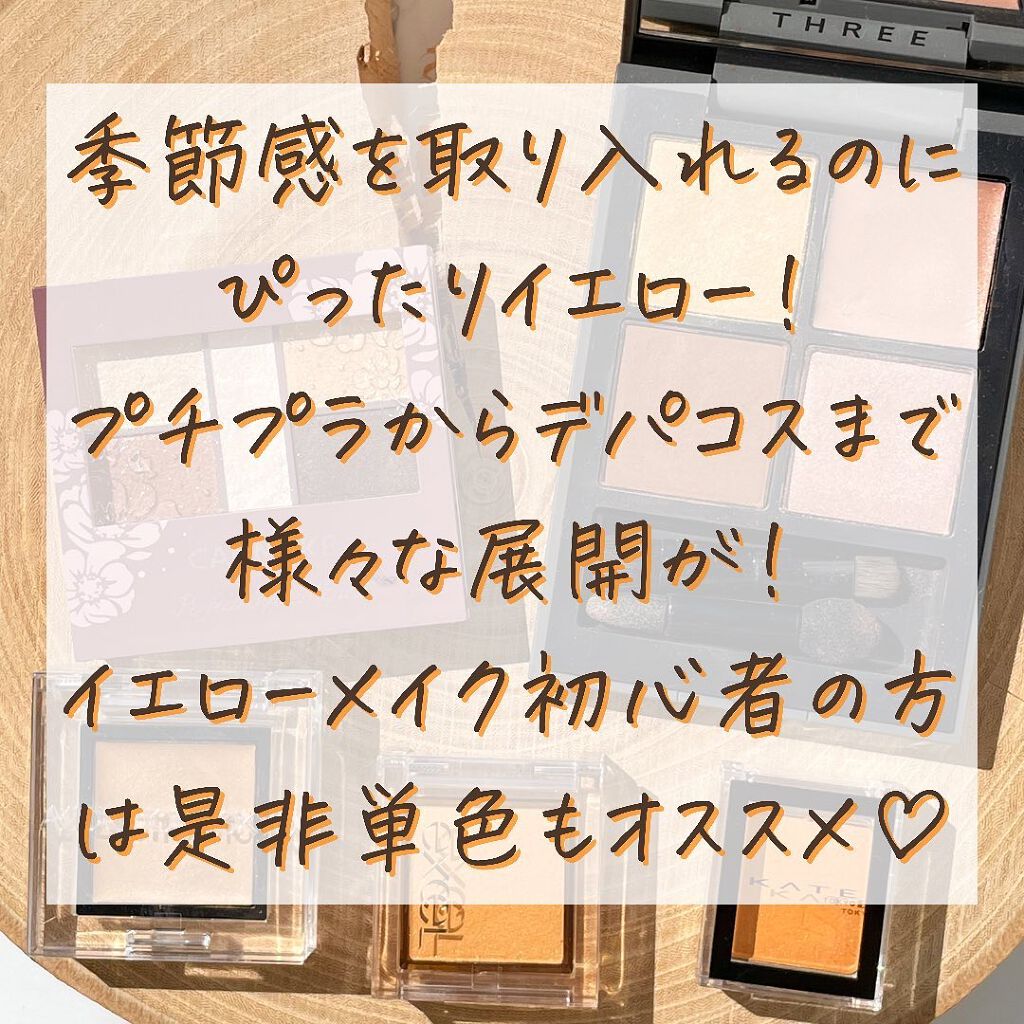 THREE
季節感を取り入れるのに
ぴったりイエロー!
プチプラからデパコスまで
様々な展開が!
イエローメイク初心者の方
は是非単色もオススメ♡
KATE
TOKYO